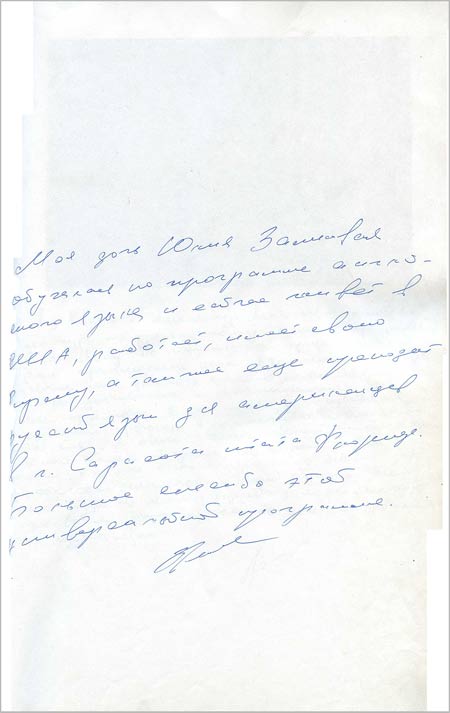 Моя дочь Юлия
обучалась по программе англий-
ского языка и сейчас живёт в
США, работает, имеет свою
фирму, а также еще преподаёт
русский язык для американцев
в г. Сарасота штата Флорида.
Большое спасибо этой
универсальной программе.